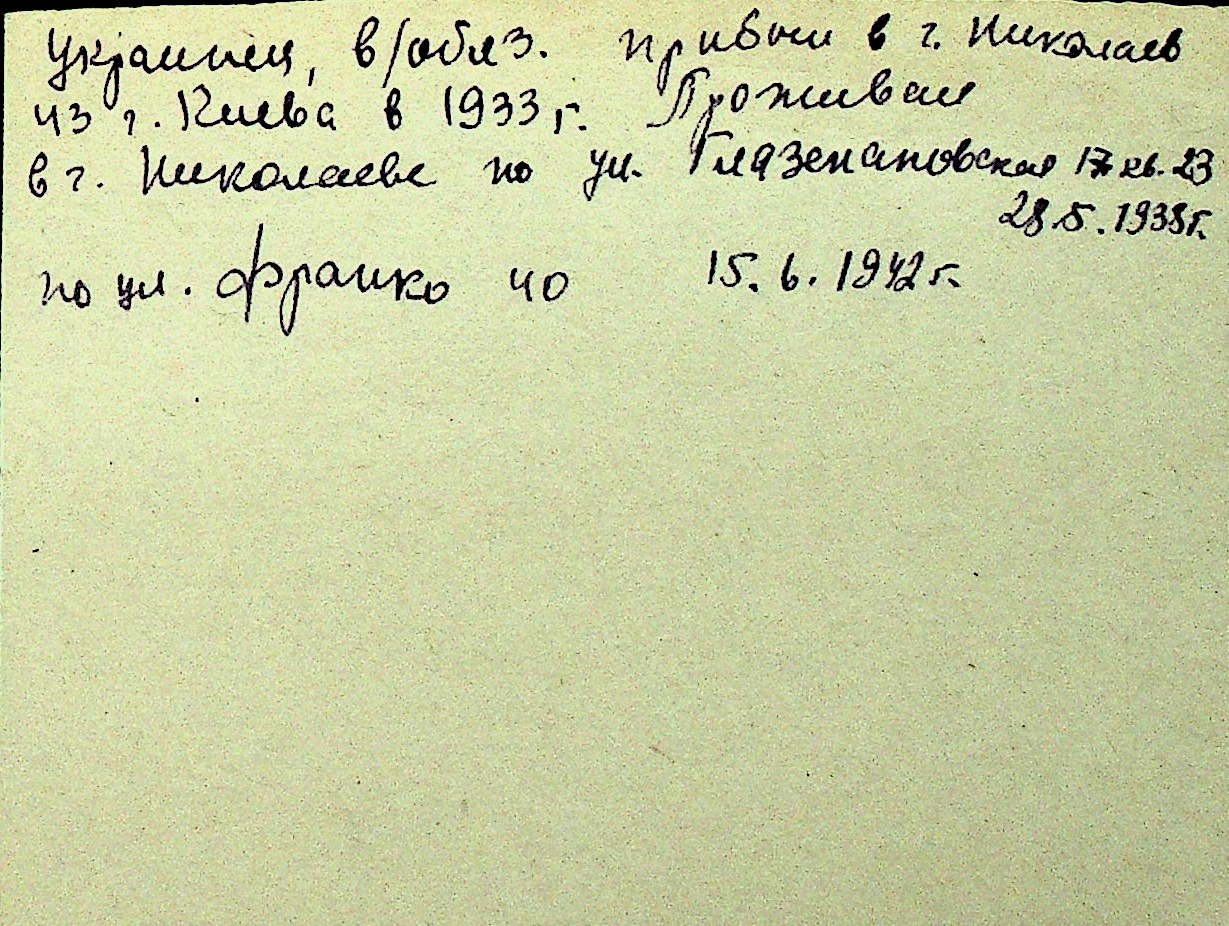 Украинец, в/обяз. прибыл в г. Николаев
из г. Киева в 1933 г. Проживал
в г. Николаеве по ул. Глазенаповская 17 кв. 23
28.5.1938 г.
по ул. Франко 40 15.6.1942 г.